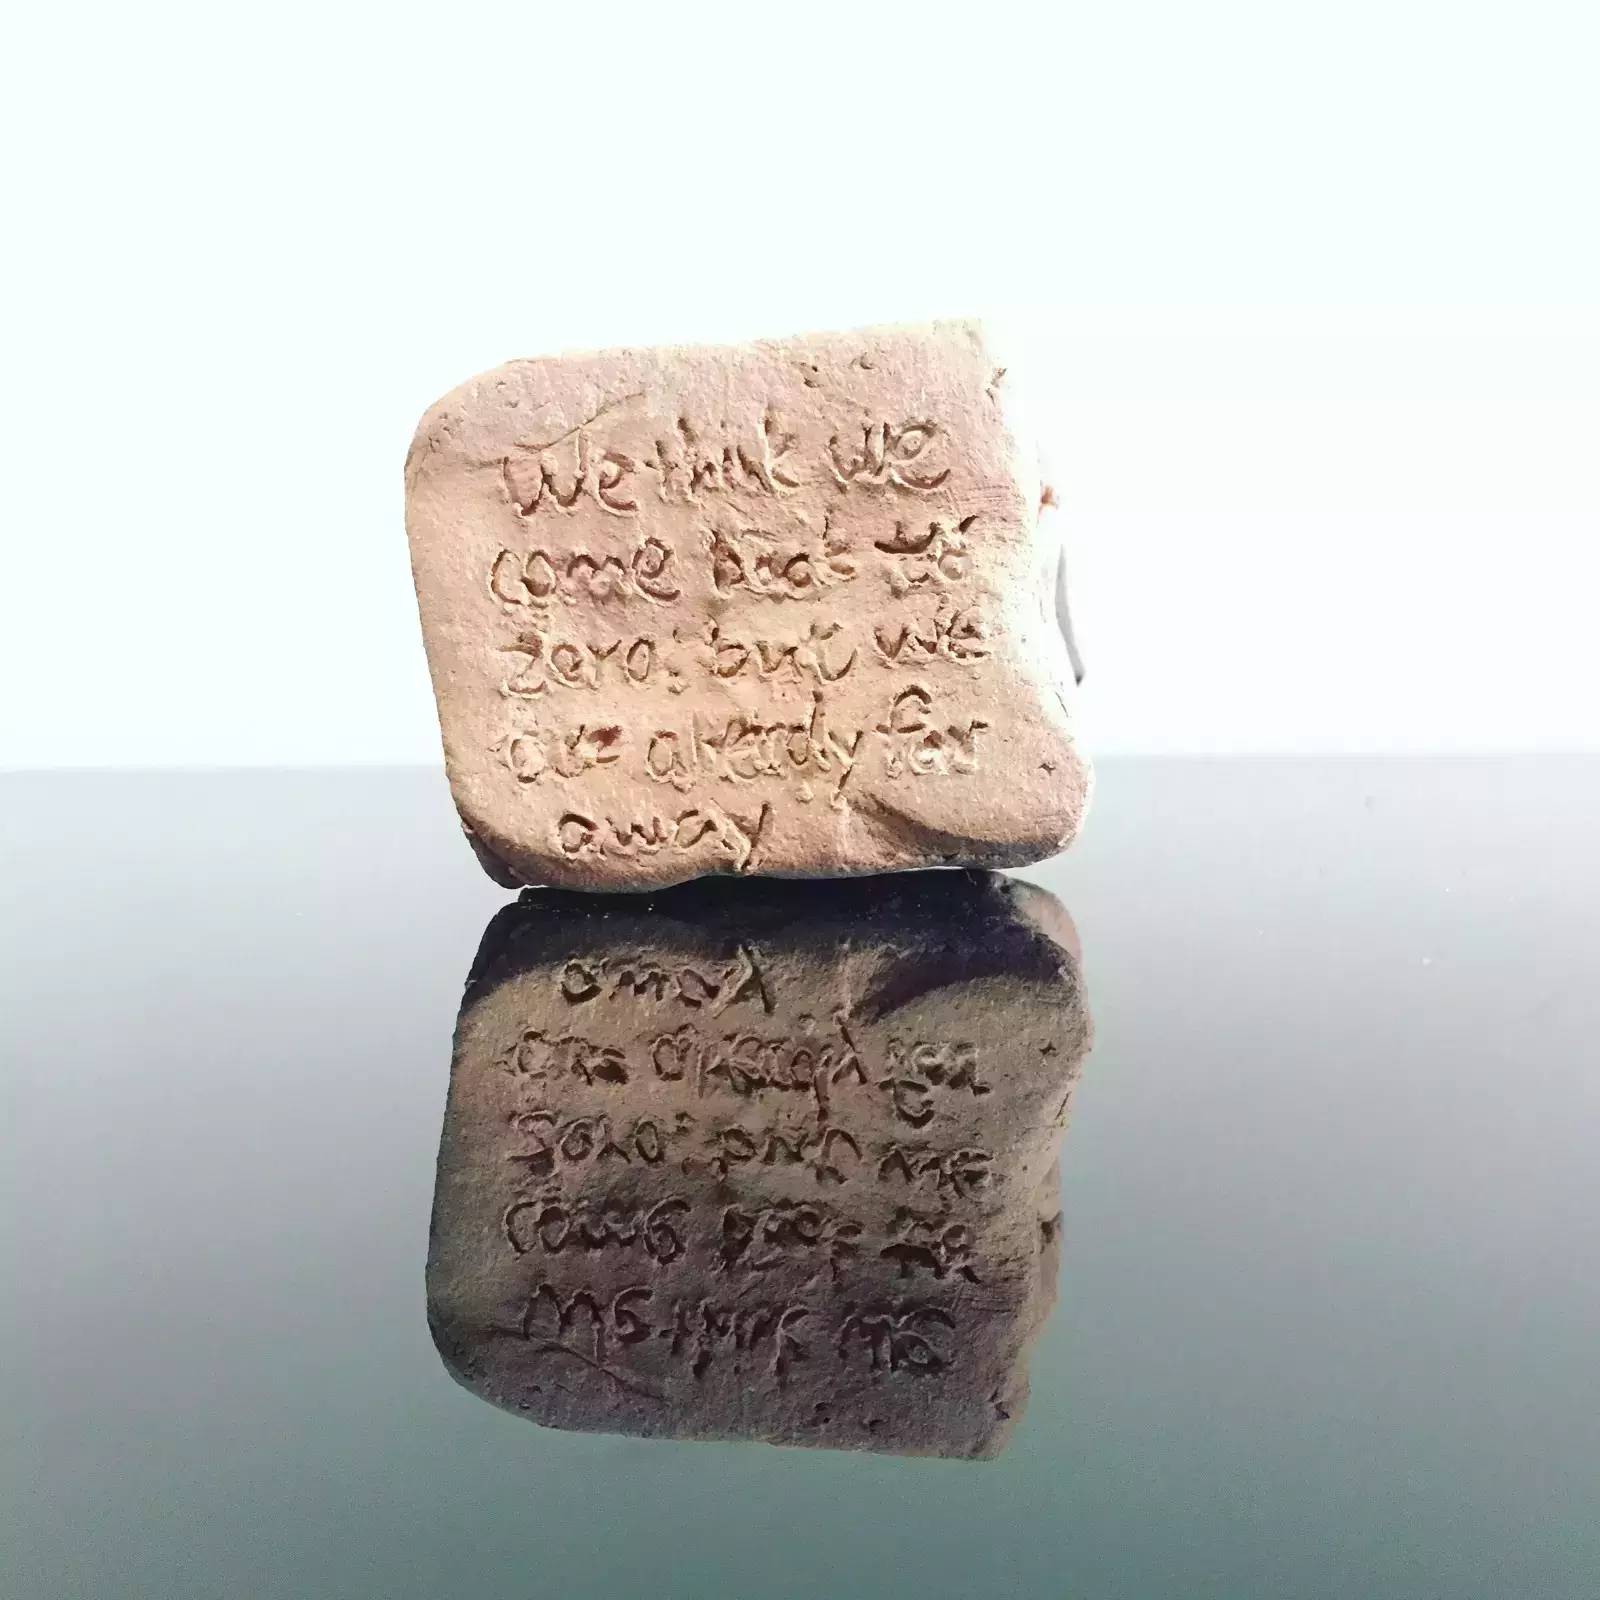 We think we
come back to
zero. but we
are already far
away